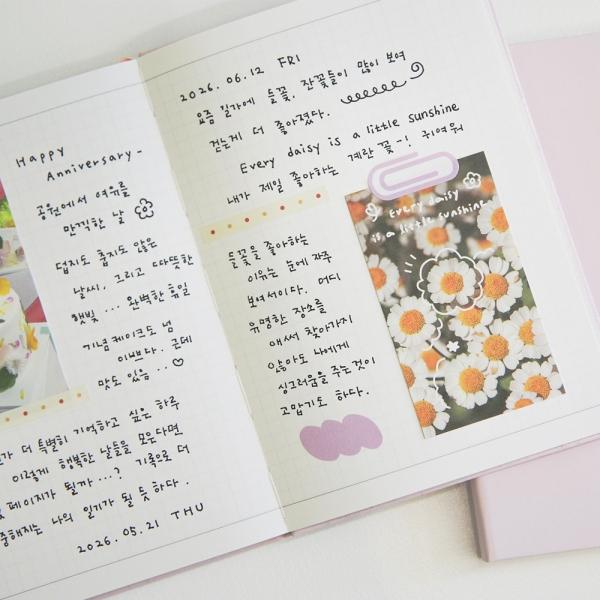 Happy
Anniversary-
공원에서 여유를
만끽한 날
덥지도 춥지도 않은
날씨, 그리고 따뜻한
햇빛... 완벽한 휴일
기념케이크도 넘
이쁘다. 근데
맛도 있음...♡
더 특별히 기억하고 싶은 하루
이렇게 행복한 날들을 모은다면
페이지가 될까...? 기록으로 더
중해지는 나의 일기가 될 듯 하다.
2026.05.21 THU
2026.06.12 FRI
요즘 길가에 들꽃, 잔꽃들이 많이 보여
걷는게 더 좋아졌다.
Every daisy is a little sunshine
내가 제일 좋아하는 계란 꽃-! 귀여워
들꽃을 좋아하는
이유는 눈에 자주
보여서이다. 머디
유명한 장소를
애써 찾아가지
않아도 나에게
싱그러움을 주는것이
고맙기도 하다.
Every daisy
is a little sunshine